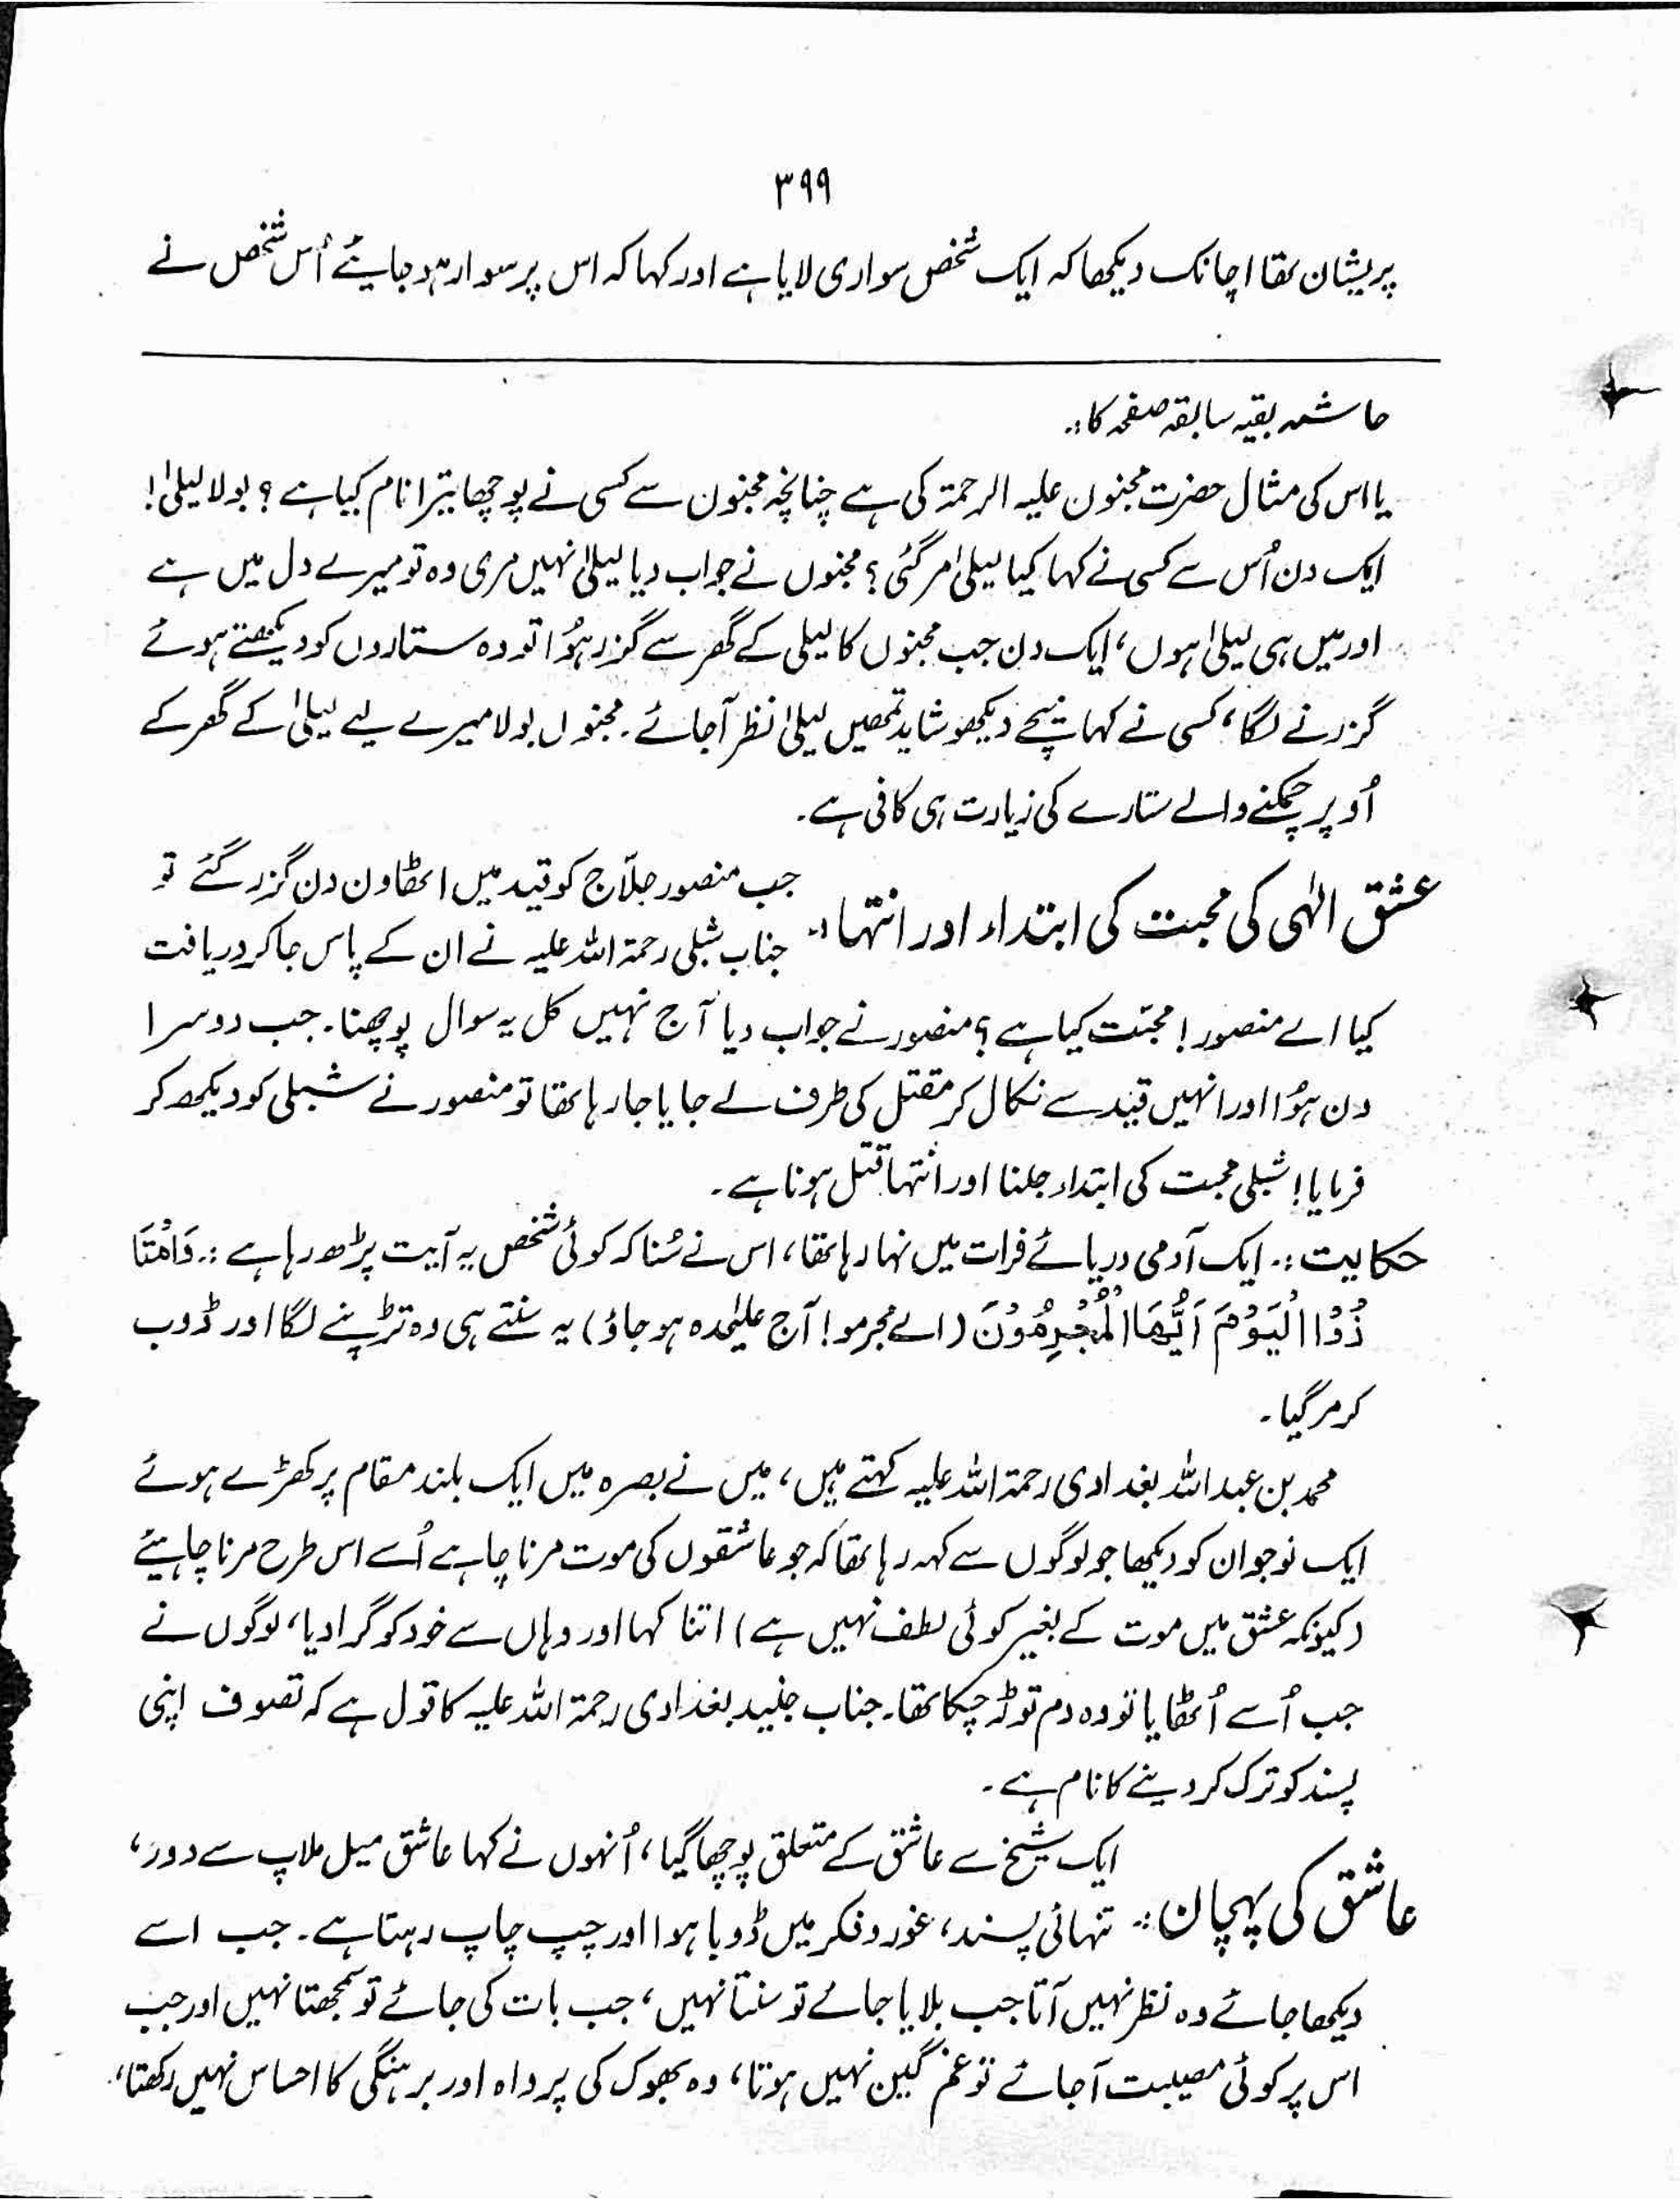 ۳۹۹
پریشان تھا اچانک دیکھا کہ ایک شخص سواری لایا ہے اور کہا کہ اس پر سوار ہو جائیے اُس شخص نے
حاشیہ بقیہ سابقہ صفحہ کا:۔
یا اس کی مثال حضرت مجنون علیہ الرحمۃ کی ہے چنانچہ مجنون سے کسی نے پوچھا تیرا نام کیا ہے؟ بولا لیلیٰ!
ایک دن اُس سے کسی نے کہا کیا لیلیٰ مر گئی؟ مجنوں نے جواب دیا لیلیٰ نہیں مری وہ تو میرے دل میں ہے
اور میں ہی لیلیٰ ہوں، ایک دن جب مجنوں کا لیلی کے گھر سے گزر ہُوا تو وہ ستاروں کو دیکھتے ہوئے
گزرنے لگا، کسی نے کہا نیچے دیکھو شاید تمھیں لیلیٰ نظر آجائے۔ مجنوں بولا میرے لیے لیلیٰ کے گھر کے
اُوپر چمکنے والے ستارے کی زیارت ہی کافی ہے۔
عشق الٰہی کی محبت کی ابتداء اور انتہا:۔ جب منصور حلاّج کو قید میں اٹھاون دن گزر گئے تو
جناب شبلی رحمۃ اللہ علیہ نے ان کے پاس جا کر دریافت
کیا اے منصور! محبّت کیا ہے؟ منصور نے جواب دیا آج نہیں کل یہ سوال پوچھنا۔ جب دوسرا
دن ہُوا اور انہیں قید سے نکال کر مقتل کی طرف لے جایا جا رہا تھا تو منصور نے شبلی کو دیکھ کر
فرمایا! شبلی محبت کی ابتداء جلنا اور انتہا قتل ہونا ہے۔
حکایت:۔ ایک آدمی دریائے فرات میں نہا رہا تھا، اس نے سُنا کہ کوئی شخص یہ آیت پڑھ رہا ہے:۔ وَامْتَا
زُوْا الْیَوْمَ اَیُّھَا الْمُجْرِمُوْنَ (اے مجرمو! آج علیٰحدہ ہو جاؤ) یہ سنتے ہی وہ تڑپنے لگا اور ڈوب
کر مر گیا۔
محمد بن عبداللہ بغدادی رحمۃ اللہ علیہ کہتے ہیں، میں نے بصرہ میں ایک بلند مقام پر کھڑے ہوئے
ایک نوجوان کو دیکھا جو لوگوں سے کہہ رہا تھا کہ جو عاشقوں کی موت مرنا چاہے اُسے اس طرح مرنا چاہیئے
(کیونکہ عشق میں موت کے بغیر کوئی لطف نہیں ہے) اتنا کہا اور وہاں سے خود کو گرا دیا، لوگوں نے
جب اُسے اُٹھایا تو وہ دم توڑ چکا تھا۔ جناب جنید بغدادی رحمۃ اللہ علیہ کا قول ہے کہ تصوف اپنی
پسند کو ترک کر دینے کا نام ہے۔
عاشق کی پہچان:۔ ایک شیخ سے عاشق کے متعلق پوچھا گیا، اُنہوں نے کہا عاشق میل ملاپ سے دور،
تنہائی پسند، غور و فکر میں ڈوبا ہوا اور چپ چاپ رہتا ہے۔ جب اسے
دیکھا جائے وہ نظر نہیں آتا جب بلایا جائے تو سنتا نہیں، جب بات کی جائے تو سمجھتا نہیں اور جب
اس پر کوئی مصیبت آجائے تو غم گین نہیں ہوتا، وہ بھوک کی پرواہ اور برہنگی کا احساس نہیں رکھتا،